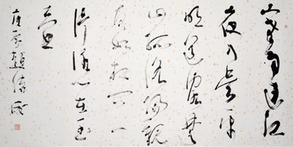 寒雨連江
夜入吳平
明送客楚
山孤洛陽親
友如相問一
片冰心在玉
壺